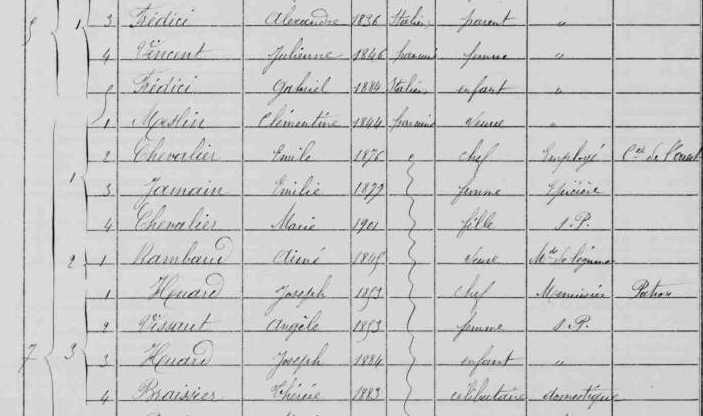 5 1 3 Frédici Alexandre 1836 Italien parent "
4 Vincent Julienne 1846 française femme "
5 Frédici Gabriel 1884 Italien enfant "
1 Maslin Clémentine 1844 française veuve "
1 2 Chevalier Emile 1876 " chef Employé Cie de l'Ouest
3 Jamain Emilie 1877 femme Epicière
4 Chevalier Marie 1901 fille s.P.
2 1 Rambaud Aimé 1845 veuve Mde de légumes
1 Huard Joseph 1853 chef Menuisier Patron
2 Visant Angèle 1853 femme s.P.
7 3 3 Huard Joseph 1884 enfant "
4 Braisier Thérèse 1883 célibataire domestique